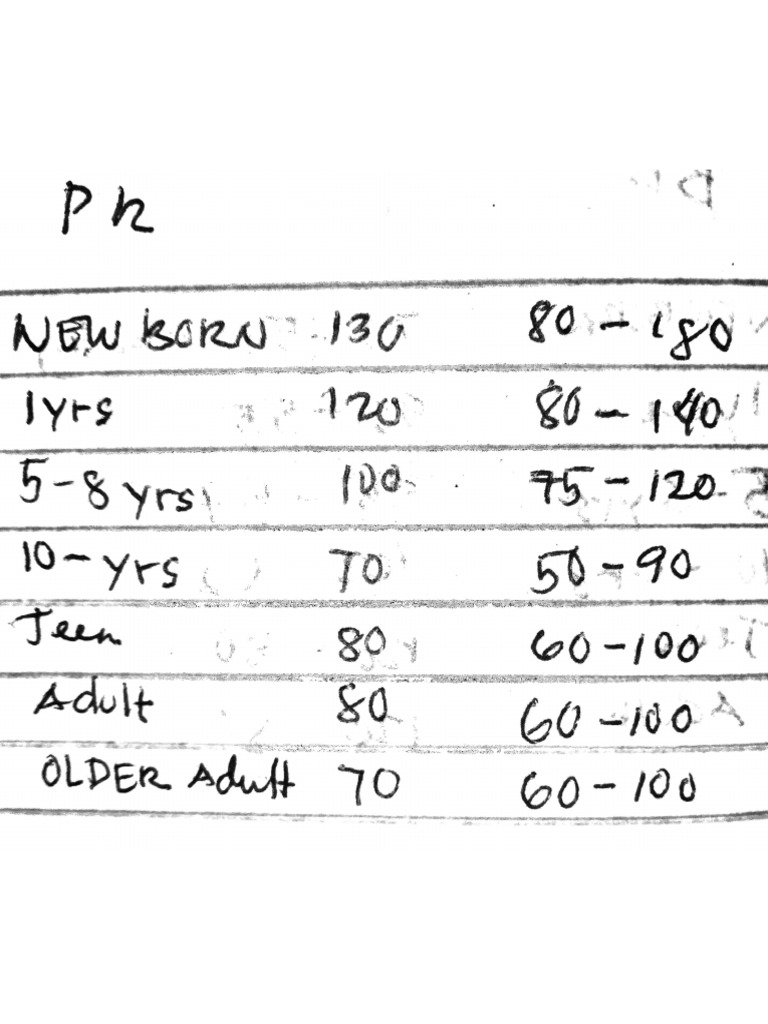 PR
NEW BORN 130 80 - 180
1yrs 120 80 - 140
5-8 yrs 100 75 - 120
10-yrs 70 50 - 90
Teen 80 60-100
Adult 80 60-100
OLDER Adult 70 60-100